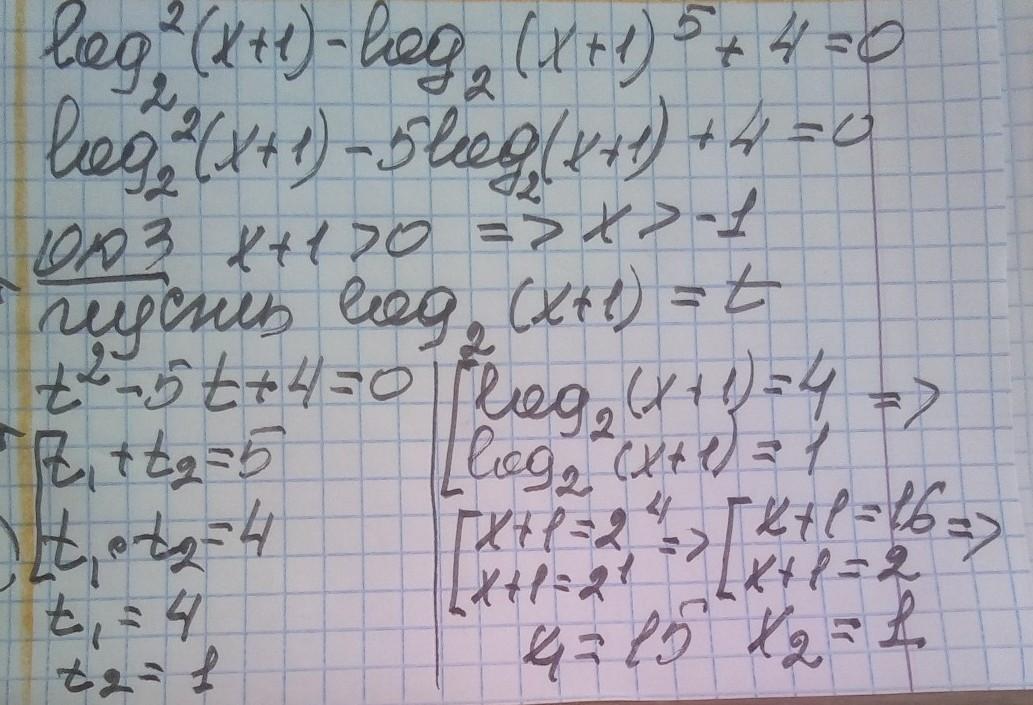 log₂²(x+1) - log₂(x+1)⁵ + 4 = 0
log₂²(x+1) - 5log₂(x+1) + 4 = 0
ОДЗ x+1 > 0 => x > -1
пусть log₂(x+1) = t
t² - 5t + 4 = 0
[t₁ + t₂ = 5
t₁ · t₂ = 4
t₁ = 4
t₂ = 1
[log₂(x+1) = 4 =>
log₂(x+1) = 1
[x+1 = 2⁴ => [x+1 = 16 =>
x+1 = 2¹ x+1 = 2
x₁ = 15 x₂ = 1